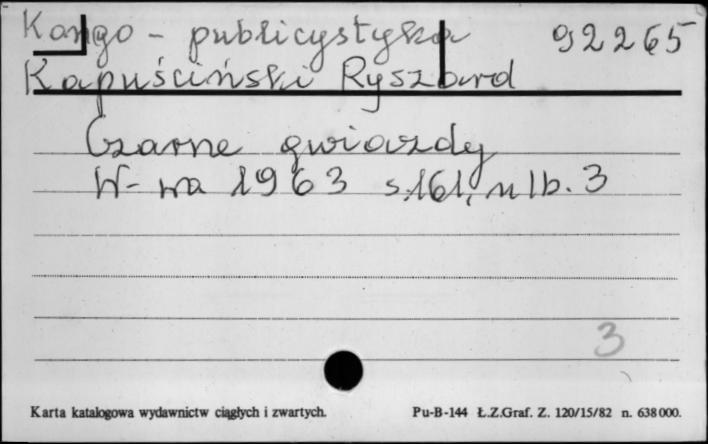 Kongo - publicystyka 92265
Kapuściński Ryszard
Czarne gwiazdy
W-wa 1963 s.161, nlb. 3
3
Karta katalogowa wydawnictw ciągłych i zwartych. Pu-B-144 Ł.Z.Graf. Z. 120/15/82 n. 638000.